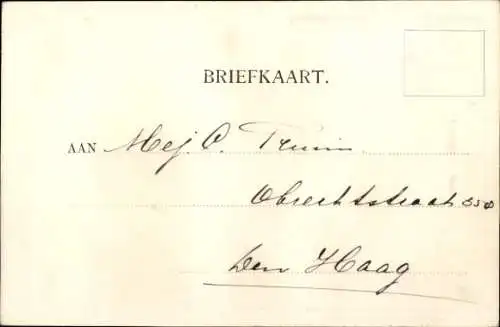 BRIEFKAART.
AAN Mej. C.
Obrechtstraat
Den Haag